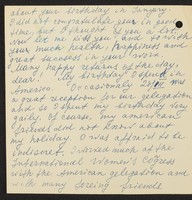 about your birthday in January.
I did not congratulate you in good
time, but I thought of you a lot.
Now let me wish you and to wish
you much health, happiness and
great success in your work
Many happy returns of the day,
dear, My birthday I spent in
America. Occasionally 28/IV was
a great reception for our delegation
and so I spent my birthday very
gaily, of course, my american
friends did not know about
my holiday I was afraid to be
indiscret. I worked much at the
International Women's Cogress
with the American delegation and
with many foreing friends